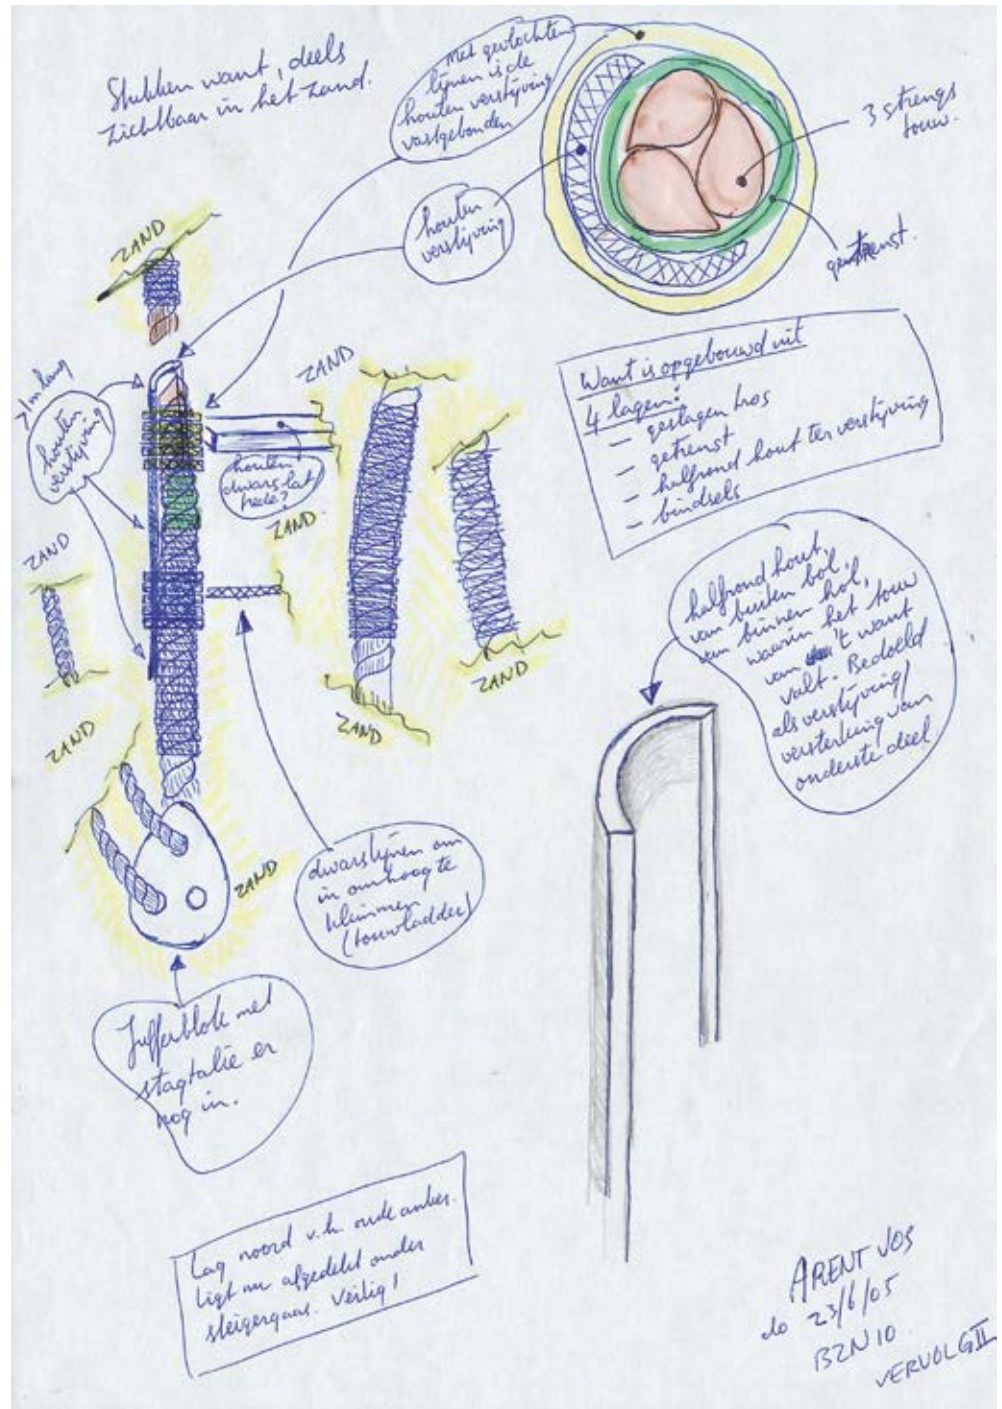 Stukken want, deels
zichtbaar in het zand.
Met gevlochten
lijnen is de
houten verstijving
vastgebonden
3 strengs
touw.
houten
verstijving
getrenst.
ZAND
Want is opgebouwd uit
4 lagen:
- geslagen tros
- getrenst
- halfrond hout ter verstijving
- bindsels
ZAND
>1m lang
houten
verstijving
houten
dwarslat
rede?
ZAND.
ZAND
ZAND
ZAND
ZAND
ZAND
halfrond hout,
van buiten bol,
van binnen hol,
waarin het touw
van 't want
valt. Bedoeld
als verstijving/
versterking van
onderste deel
dwarslijnen om
in omhoog te
klimmen
(touwladder)
Jufferblok met
stagtalie er
nog in.
Lag noord v.h. oude anker.
Ligt nu afgedekt onder
steigergaas. Veilig!
ARENT VOS
do 23/6/05
BZN 10
VERVOLG II